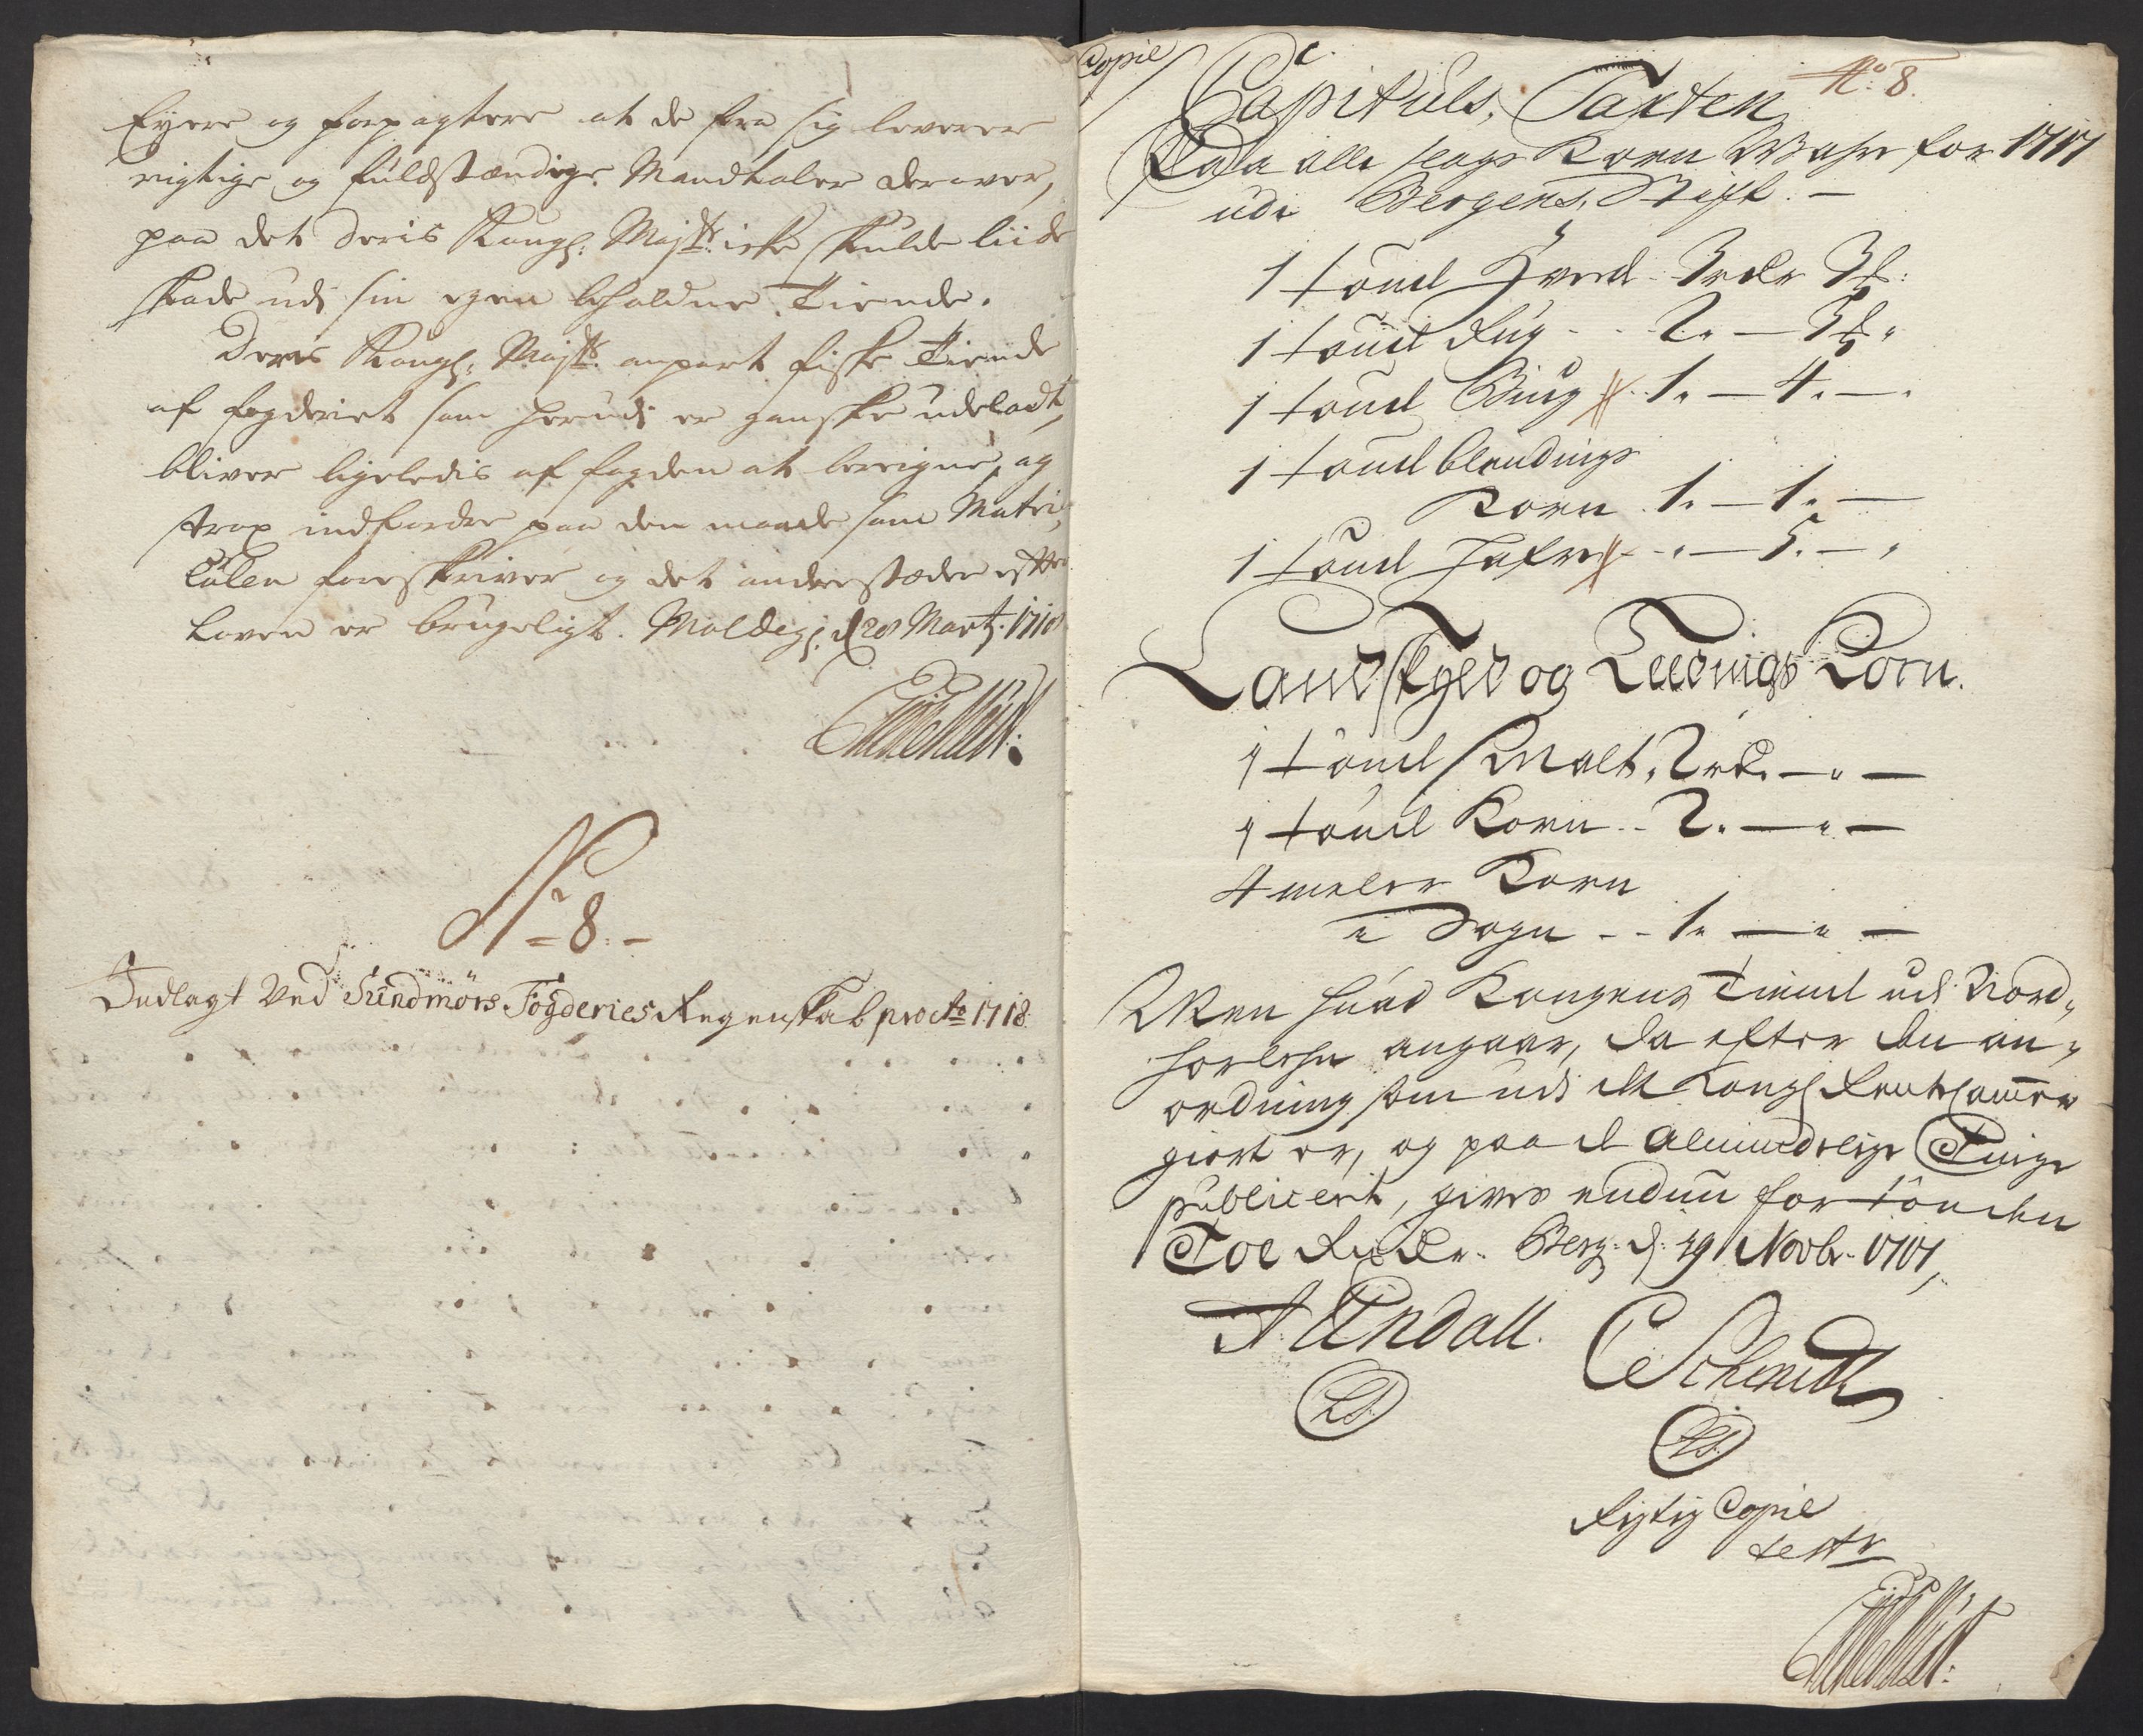 Eyere og forpagtere at de fra sig leverer
rigtige og fuldstændige Mandtaler derover,
paa det deris Kongl: Majts: icke skulde liide
skade udi sin egen beholdne Tiende.
Deris Kongl: Majts: anpart fiske Tiende
af fogderiet som herudi er ganske udeladt,
bliver ligeledis af fogden at beregne, og
strax indfordre paa den maade som Matri-
culen foreskriver og det andre stæder efter
Loven er brugeligt. Moldeg: d 28 Martj: 1718
No 8.
Indlagt Ved Sundmörs Fögderies Regenskab pro Ao 1718.
Copie
No: 8.
Capituls Taxten
Paa alle slags Korn Wahre for 1717
udi Bergens Stift.
1 tönd Hvede 3 rdr 3 ℔:
1 tönd Rug - - 2. — 3 ℔.
1 tönd Biug 1. — 4. —.
1 tönd blandings
Korn 1. — 1. —
1 tönd Hafre - . — 5. — .
Landskyld og Leedings Korn.
1 tönd Malt. 2 rd. — . —
1 tönd Korn - - 2. — . —
4 meler Korn
i Sogn - - 1. — . —
Men hvad Kongens Tiende udi Nord-
horlehn angaar, da efter den an-
ordning som udi det Kongl Rente Cammer
giort er, og paa de Almindelige Tinge
publicert, gives endnu for tönden
Toe Rixdr. Berg: d: 29 Novbr. 1717,
A Undall. C Schmidt
LS.
LS.
Rigtig Copie
test: